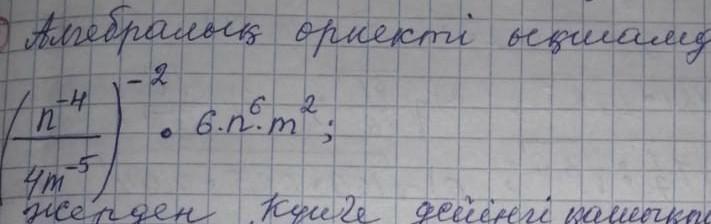 Алгебралық өрнекті ықшамд
(n⁻⁴/4m⁻⁵)⁻² · 6·n⁶·m²;
жерден Күнге дейінгі қашықты